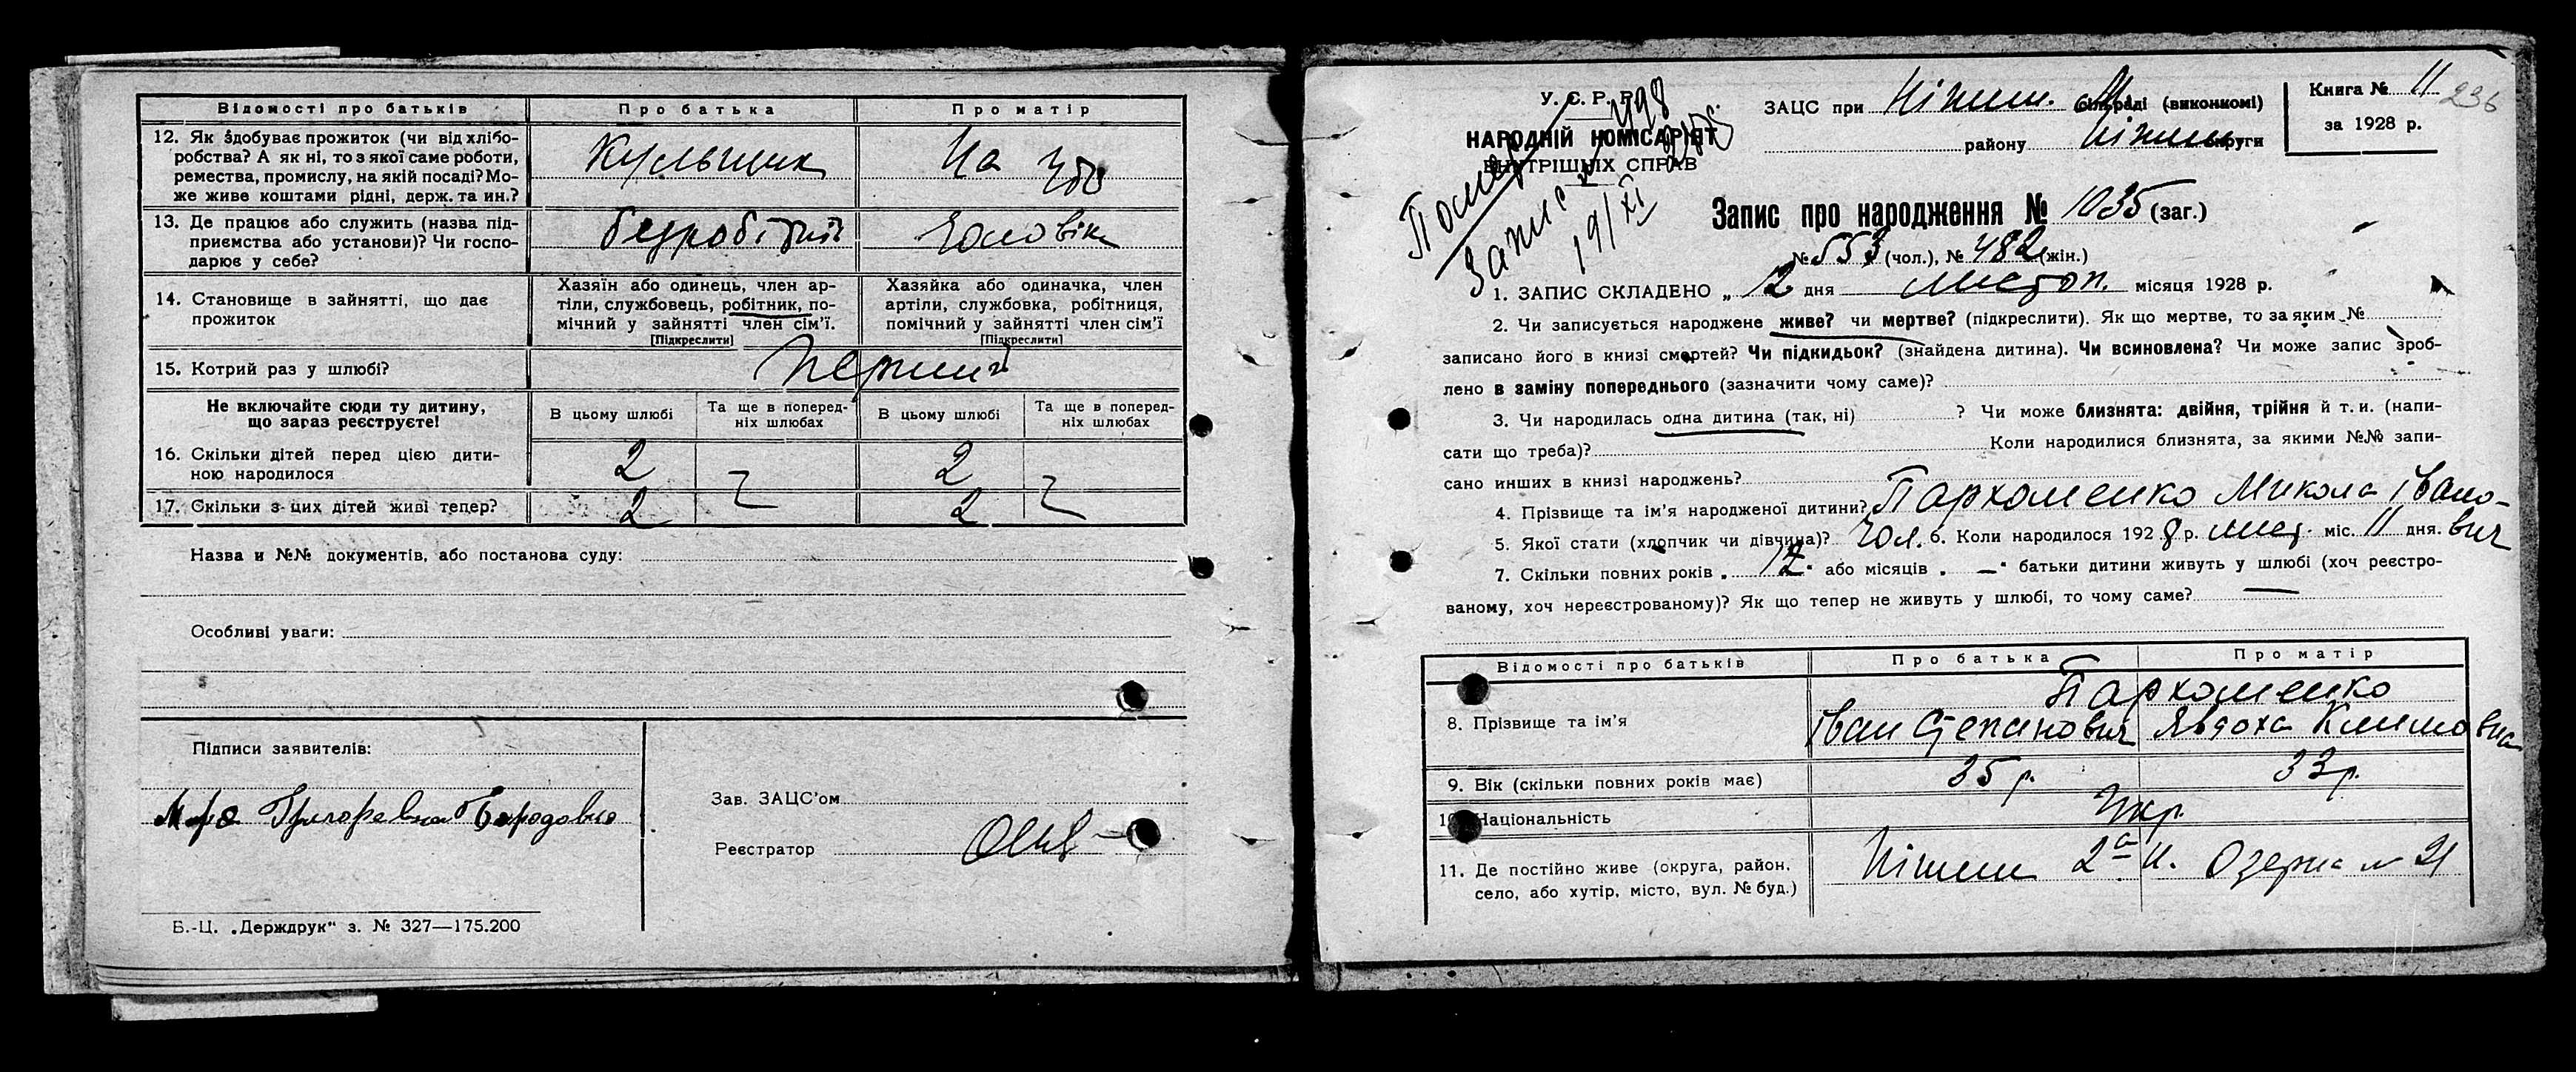 Відомості про батьків
Про батька
Про матір
12. Як здобуває прожиток (чи від хлібо-
робства? А як ні, то з якої саме роботи,
ремества, промислу, на якій посаді? Мо-
же живе коштами рідні, держ. та ин.?
На
13. Де працює або служить (назва під-
приємства або установи)? Чи госпо-
дарює у себе?
безробітний
чоловіка
14. Становище в зайнятті, що дає
прожиток
Хазяїн або одинець, член ар-
тіли, службовець, робітник, по-
мічний у зайнятті член сім'ї.
[Підкреслити]
Хазяйка або одиначка, член
артіли, службовка, робітниця,
помічний у зайнятті член сім'ї
[Підкреслити]
15. Котрий раз у шлюбі?
Перший
Не включайте сюди ту дитину,
що зараз реєструєте!
В цьому шлюбі
Та ще в поперед-
ніх шлюбах
В цьому шлюбі
Та ще в поперед-
ніх шлюбах
16. Скільки дітей перед цією дити-
ною народилося
2
2
17. Скільки з цих дітей живі тепер?
2
2
Назва и №№ документів, або постанова суду:
Особливі уваги:
Підписи заявителів:
Зав. ЗАЦС'ом
Реєстратор
Б.-Ц. „Держдрук" з. № 327—175.200
У. С. Р. Р.
НАРОДНІЙ КОМІСАРІЯТ
ВНУТРІШНІХ СПРАВ
Помер
Запис № 498
19/XI
ЗАЦС при Ніжин. М. сільраді (виконкомі)
району Ніжин округи
Книга № 11
за 1928 р.
236
Запис про народження № 1035 (заг.)
№ 553 (чол.), № 482 (жін.)
1. ЗАПИС СКЛАДЕНО „ 12 дня листоп. місяця 1928 р.
2. Чи записується народжене живе? чи мертве? (підкреслити). Як що мертве, то за яким №
записано його в книзі смертей? Чи підкидьок? (знайдена дитина). Чи всиновлена? Чи може запис зроб-
лено в заміну попереднього (зазначити чому саме)?
3. Чи народилась одна дитина (так, ні) ? Чи може близнята: двійня, трійня й т. и. (напи-
сати що треба)? Коли народилися близнята, за якими №№ запи-
сано инших в книзі народжень?
4. Прізвище та ім'я народженої дитини? Пархоменко Микола Івано-
вич
5. Якої стати (хлопчик чи дівчина)? чол. 6. Коли народилося 1928 р. лист. міс. 11 дня.
7. Скільки повних років 12 або місяців — батьки дитини живуть у шлюбі (хоч реєстро-
ваному, хоч нереєстрованому)? Як що тепер не живуть у шлюбі, то чому саме? —
Відомості про батьків
Про батька
Про матір
8. Прізвище та ім'я
Пархоменко
Іван Степанович
Явдоха Климовна
9. Вік (скільки повних років має)
35 р.
33 р.
10. Національність
Укр.
11. Де постійно живе (округа, район,
село, або хутір, місто, вул. № буд.)
Ніжин 2а Н. Озерна № 21